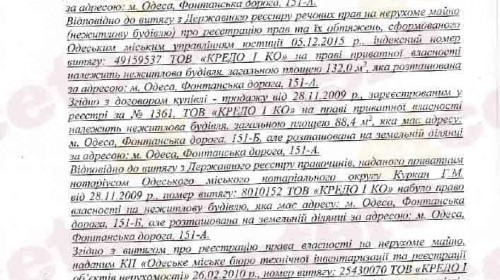 за адресою: м. Одеса, Фонтанська дорога, 151-А.
Відповідно до витягу з Державного реєстру речових прав на нерухоме майно
(нежитлову будівлю) про реєстрацію прав та їх обтяжень, сформованого
Одеським міським управлінням юстиції 05.12.2015 р., індексний номер
витягу: 49159537 ТОВ «КРЕДО І КО» на праві приватної власності
належить нежитлова будівля, загальною площею 132,0 м², яка розташована
за адресою: м. Одеса, Фонтанська дорога, 151-А.
Згідно з договором купівлі - продажу від 28.11.2009 р., зареєстрованим у
реєстрі за № 1361, ТОВ «КРЕДО І КО» на праві приватної власності
належить нежитлова будівля, загальною площею 88,4 м², яка має адресу:
м. Одеса, Фонтанська дорога, 151-Б, але розташована на земельній ділянці
за адресою: м. Одеса, Фонтанська дорога, 151-А.
Відповідно до витягу з Державного реєстру правочинів, наданого приватним
нотаріусом Одеського міського нотаріального округу Куркан Г.М.
від 28.11.2009 р., номер витягу: 8010152 ТОВ «КРЕДО І КО» набуло право
власності на нежитлову будівлю, яка має адресу: м. Одеса, Фонтанська
дорога, 151-Б, але розташована на земельній ділянці за адресою: м. Одеса,
Фонтанська дорога, 151-А.
Згідно з витягом про реєстрацію права власності на нерухоме майно,
наданим КП «Одеське міське бюро технічної інвентаризації та реєстрації
об'єктів нерухомості» 26.02.2010 р., номер витягу: 25430070 ТОВ «КРЕДО І